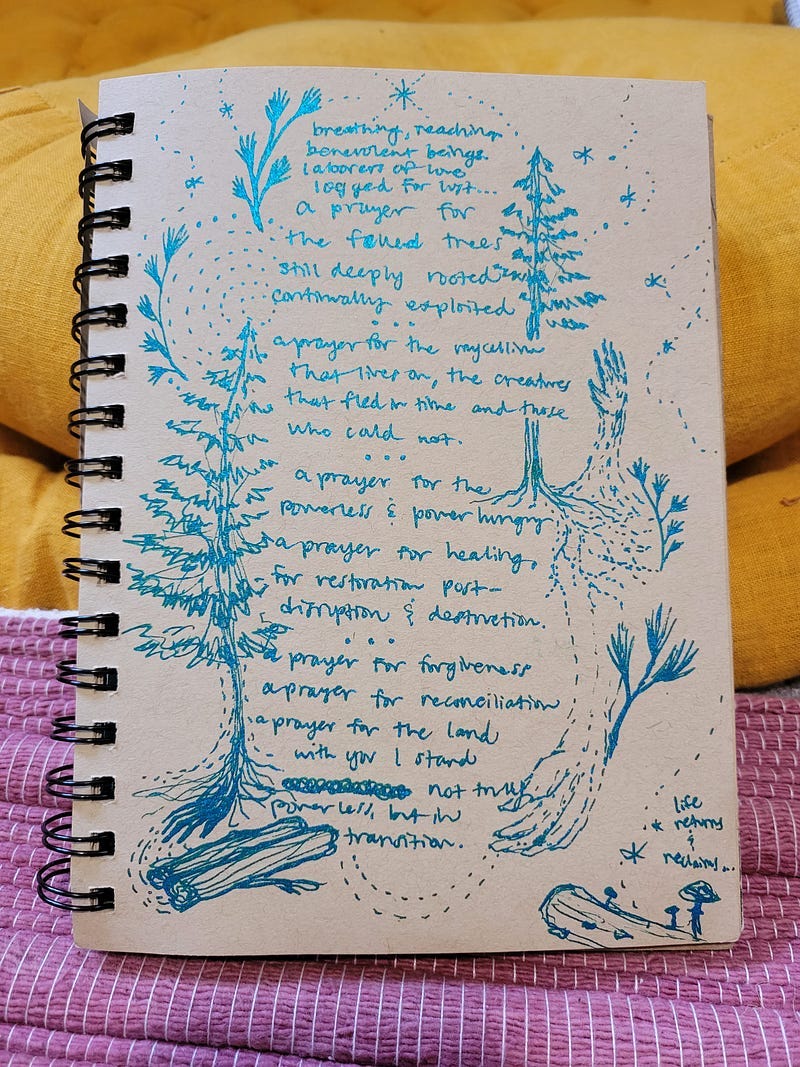 breathing, reaching
benevolent beings.
laborers of love
logged for lust...
a prayer for
the felled trees
still deeply rooted
continually exploited
...
a prayer for the mycelium
that lives on, the creatures
that fled in time and those
who could not.
...
a prayer for the
powerless & power hungry
a prayer for healing,
for restoration post-
disruption & destruction.
...
a prayer for forgiveness
a prayer for reconciliation
a prayer for the land
with you I stand
not truly
powerless, but in
transition.
life
returns
&
reclaims...